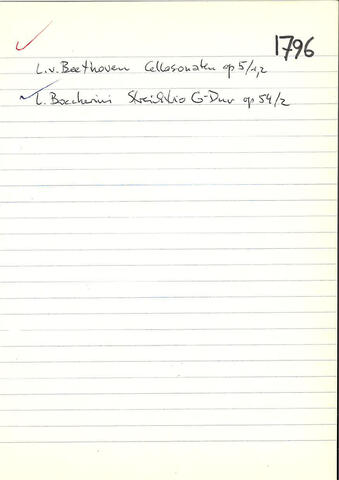 1796
L.v.Beethoven Cellosonaten op 5/1,2
L. Boccherini Streichtrio G-Dur op 54/2